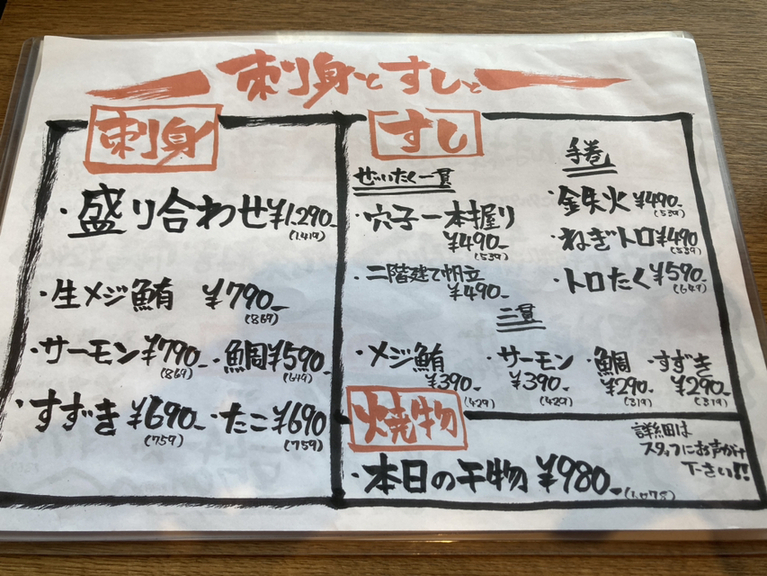 刺身とすしと
刺身
・盛り合わせ¥1,290-
(1,419)
・生メジ鮪 ¥790-
(869)
・サーモン¥790- ・鯛¥590-
(869) (649)
・すずき¥690- ・たこ¥690
(759) (759)
すし
ぜいたく一貫
・穴子一本握り
¥490-
(539)
・二階建て帆立
¥490-
手巻
・金朱火¥490-
(539)
・ねぎトロ¥490
(539)
・トロたく¥590-
(649)
二貫
・メジ鮪 ・サーモン ・鯛 ・すずき
¥390- ¥390- ¥290- ¥290-
(429) (429) (319) (319)
焼物
・本日の干物 ¥980-
(1,078)
詳細は
スタッフにお声がけ
下さい!!